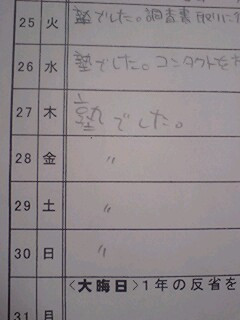 25 火 塾でした。調査書取りに行
26 水 塾でした。コンタクトを
27 木 塾でした。
28 金 〃
29 土 〃
30 日 〃
31 月 <大晦日>1年の反省を